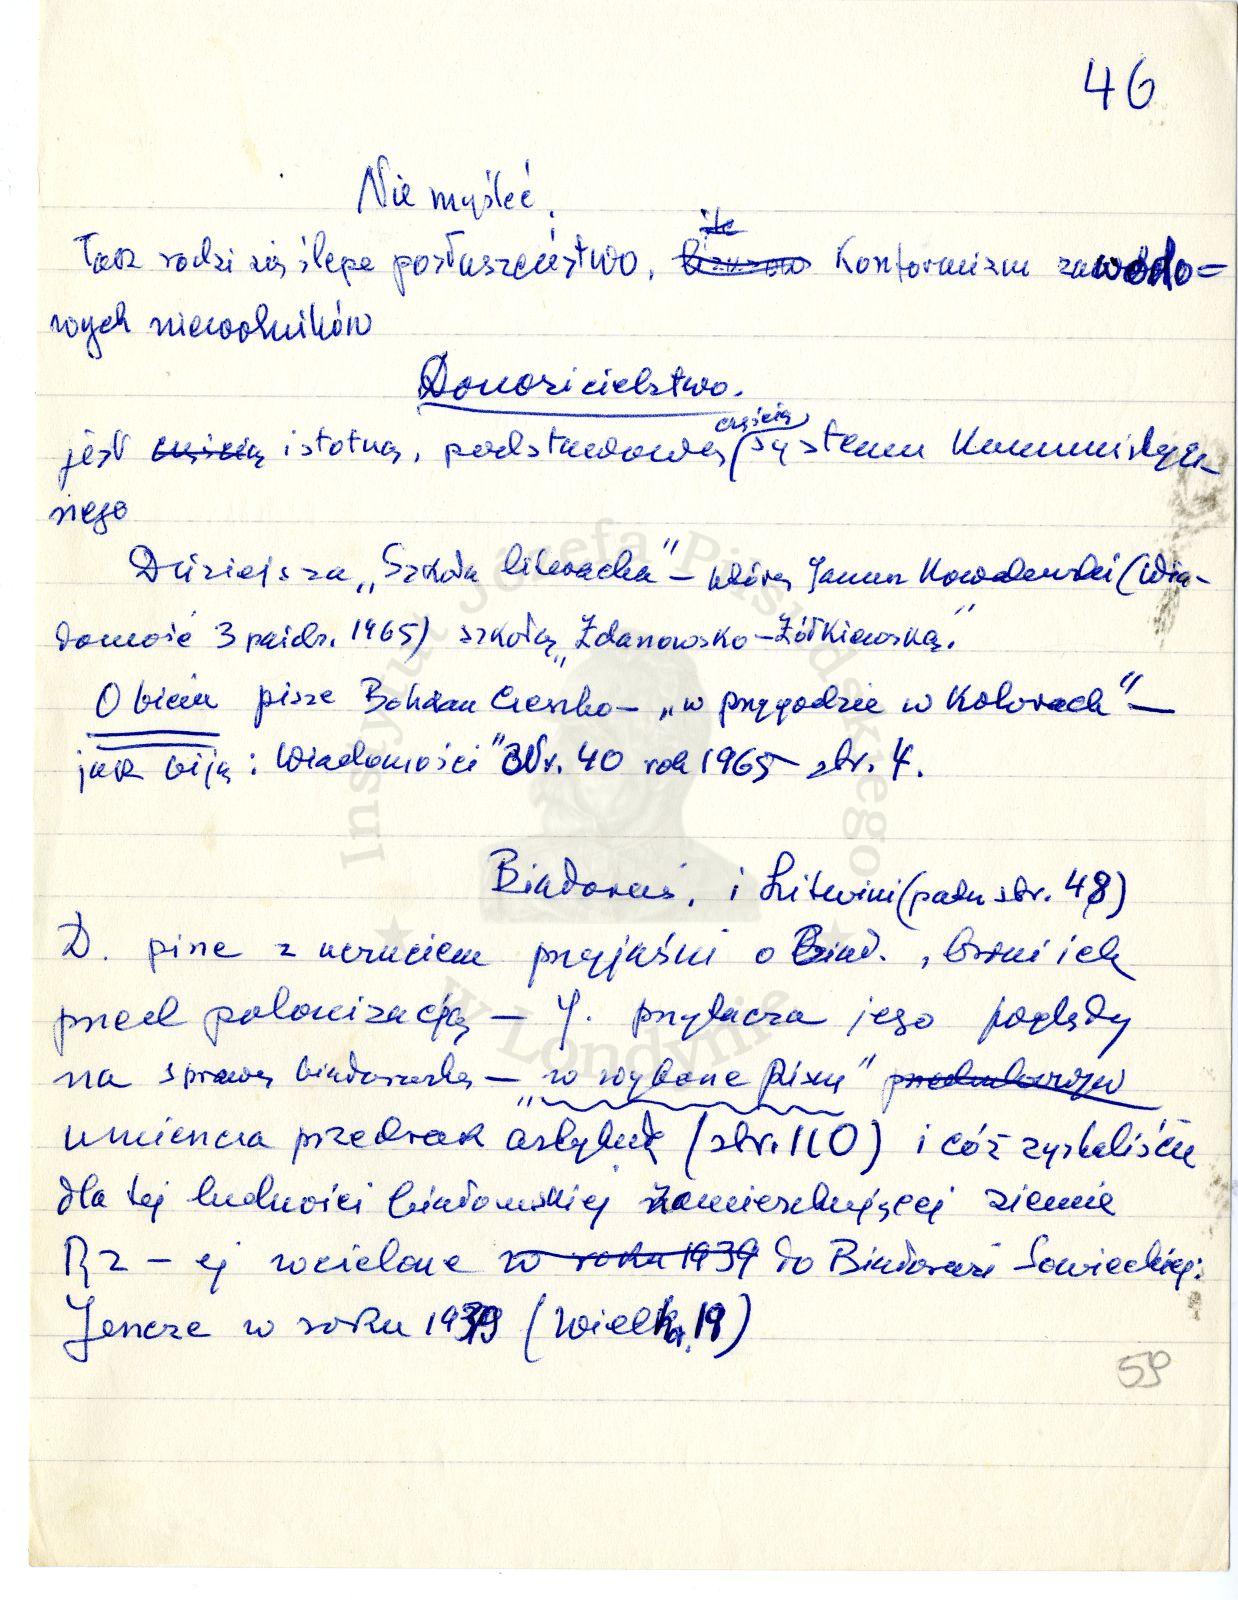 46
Nie myśleć.
Tak rodzi się ślepe posłuszeństwo, Konformizm zawodo=
wych niewolników
Donosicielstwo.
częścią
jest częścią istotną, podstawową systemu Komunistycz-
nego
Dzisiejsza „Szkoła literacka" – którą Janusz Kowalewski (Wia-
domość 3 paźdz. 1965) szkołą „Żdanowsko–Żółkiewską."
O biciu pisze Bohdan Czeszko – „w przygodzie w Kolorach" –
jak biją: Wiadomości" Nr. 40 rok 1965 – str. 4.
Białoruś, i Litwini (patrz str. 48)
D. pisze z uczuciem przyjaźni o Biał., broni ich
przed polonizacją – J. przytacza jego poglądy
na sprawę białoruską – „w wyborze pism"
umieszcza przedruk artykułu (str. 110) i cóż zyskaliście
dla tej ludności białoruskiej zamieszkującej ziemie
Rz – ej wcielone w roku 1939 do Białorusi Sowieckiej:
Jeszcze w roku 1939 (Wielka, 19)
59
Instytut Józefa Piłsudskiego
W Londynie